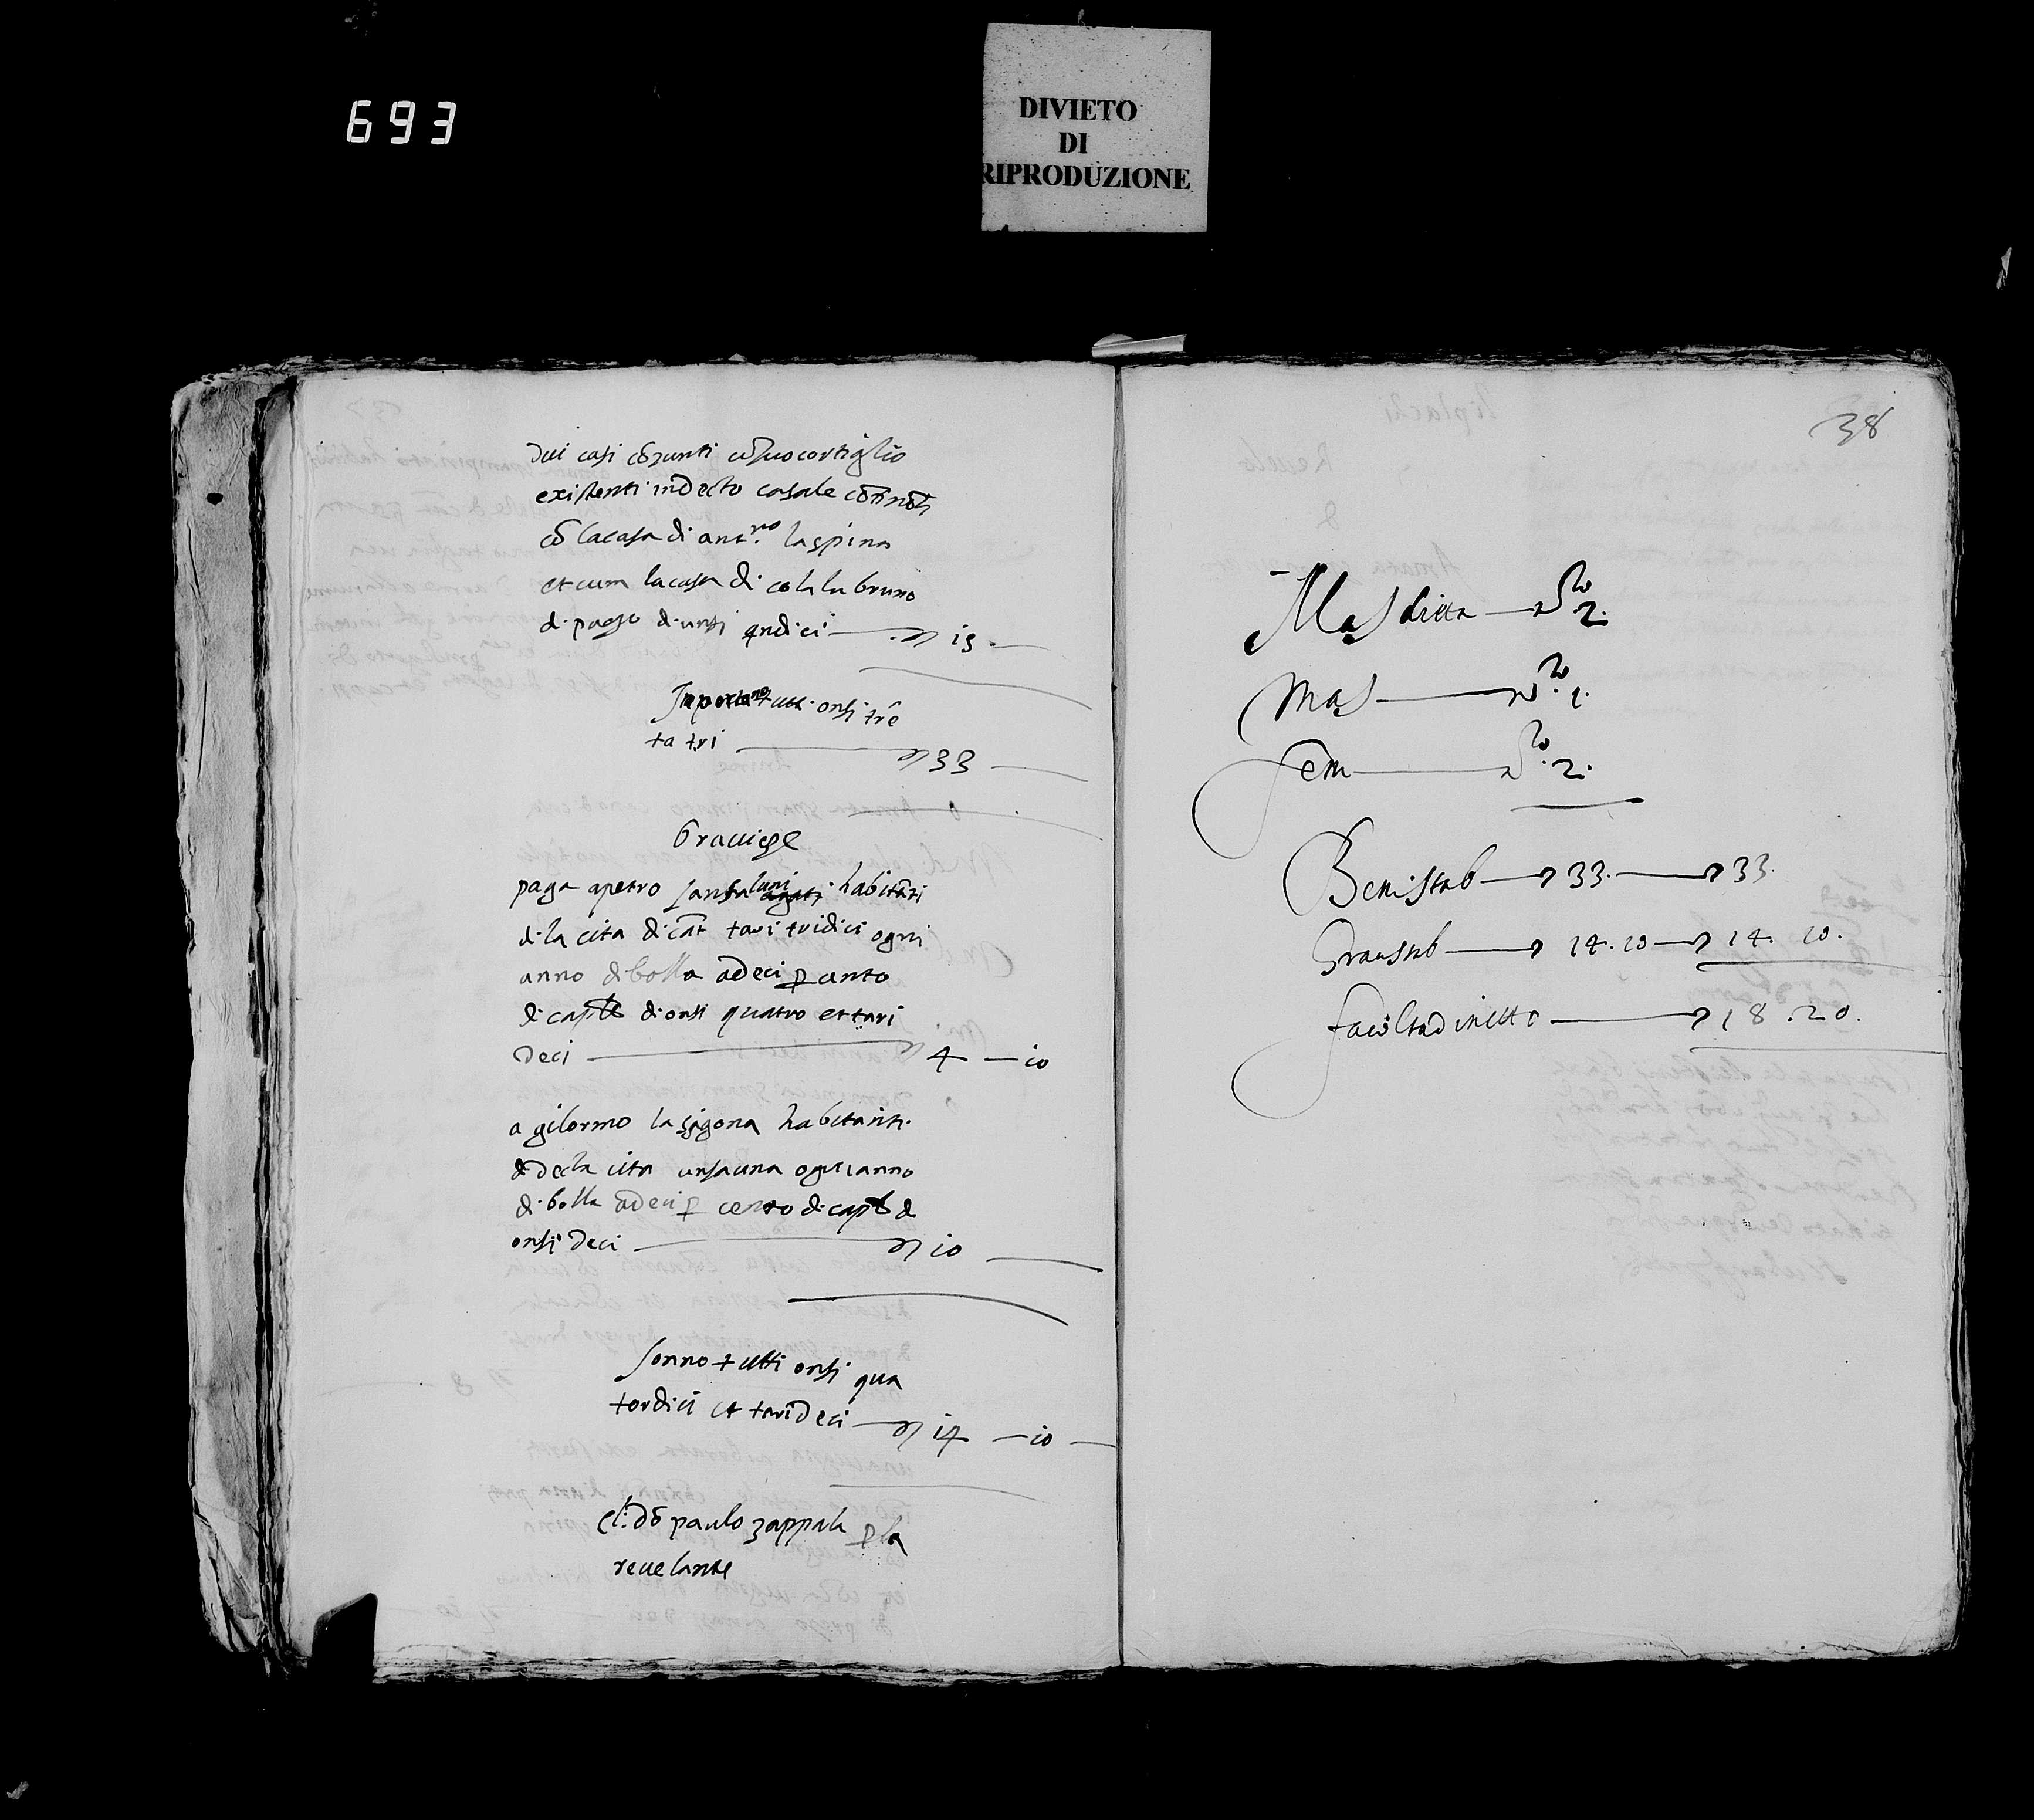 693
DIVIETO
DI
RIPRODUZIONE
dui casi coniunti cō suo cortiglio
existenti in decto casale
cō la casa di ant.no la spina
et cum la casa di cola lu bruno
di prezo di unsi qndici 15
tutti onsi trē
ta tri 33
Gravieze
paga a petro luni habitāti
di la cita di cat tari tridici ogni
anno di bolla a deci p cento
di captle di onsi quatro et tari
deci 4 — 10
a gilormo la sigona habitanti
di decta cita unsa una ogni anno
di bolla a deci p cento di captl di
onsi deci 10
sonno tutti onsi qua
tordici et tari deci 14 — 10
cl: dō paulo zappala p la
revelante
38
Mas di etta n.ro 2.
Mas n.ro 1.
Fem n.ro 2.
Beni stab 33. 33.
Grav stab 14. 10 14. 10.
facultad in netto 18. 20.